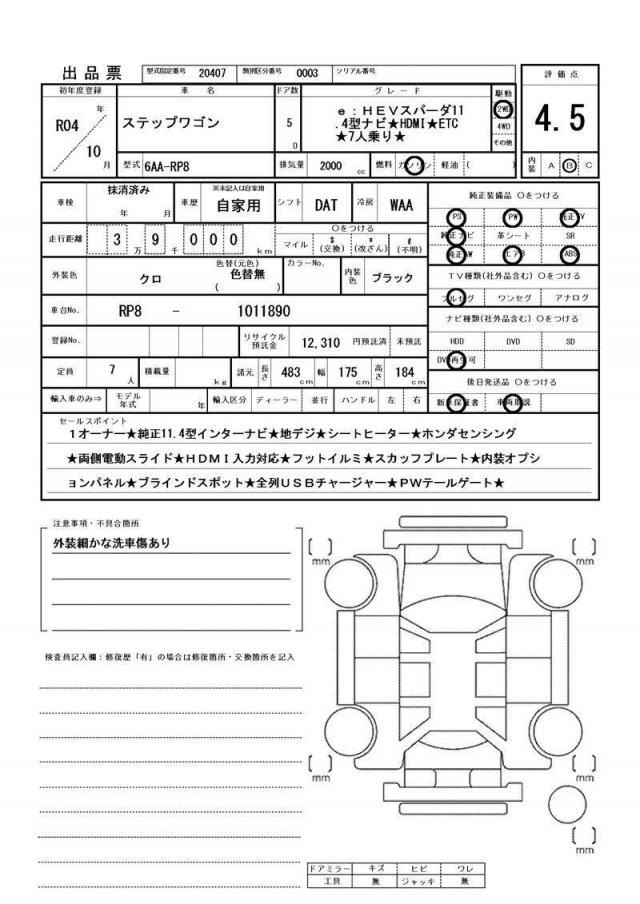 出品票 型式指定番号 20407 類別区分番号 0003 シリアル番号
初年度登録 車名 ドア数 グレード 駆動 評価点
R04 年 10 月
ステップワゴン
5 D
e:HEVスパーダ11
.4型ナビ★HDMI★ETC
★7人乗り★
2WD
4WD
その他
4.5
型式 6AA-RP8 排気量 2000 cc 燃料 ガソリン 軽油 ( ) 内装 A B C
車検 抹消済み 年 月 車歴 ※未記入は自家用 自家用 シフト DAT 冷房 WAA
純正装備品 〇をつける
PS PW 純正TV
純正ナビ 革シート SR
純正AW エアB ABS
走行距離 3 万 9 千 0 0 0 km
〇をつける
マイル $ (交換) x (改ざん) # (不明)
外装色 クロ 色替(元色) 色替無 ( ) カラーNo. 内装色 ブラック
TV種類(社外品含む) 〇をつける
フルセグ ワンセグ アナログ
車台No. RP8 - 1011890
ナビ種類(社外品含む) 〇をつける
HDD DVD SD
DVD再生可
登録No. リサイクル預託金 12,310 円預託済 未預託
定員 7 人 積載量 kg 諸元 長さ 483 cm 幅 175 cm 高さ 184 cm
後日発送品 〇をつける
新車保証書 車両取説
輸入車のみ⇒ モデル年式 年 輸入区分 ディーラー 並行 ハンドル 左 右
セールスポイント
1オーナー★純正11.4型インターナビ★地デジ★シートヒーター★ホンダセンシング
★両側電動スライド★HDMI入力対応★フットイルミ★スカッフプレート★内装オプシ
ョンパネル★ブラインドスポット★全列USBチャージャー★PWテールゲート★
注意事項・不具合箇所
外装細かな洗車傷あり
検査員記入欄:修復歴「有」の場合は修復箇所・交換箇所を記入
[ ] mm
[ ] mm
[ ] mm
[ ] mm
[ ] mm
ドアミラー キズ ヒビ ワレ
工具 無 ジャッキ 無